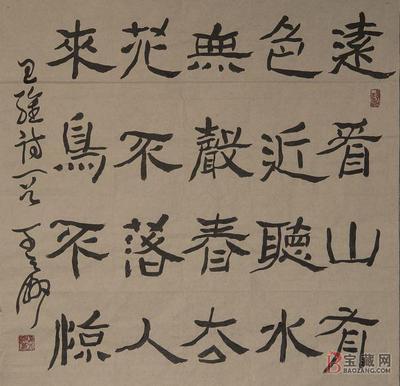 遠看山有
色近聽水
無聲春去
花不落人
來鳥不惊
王維詩一首
宝藏网
BAOZANG.COM